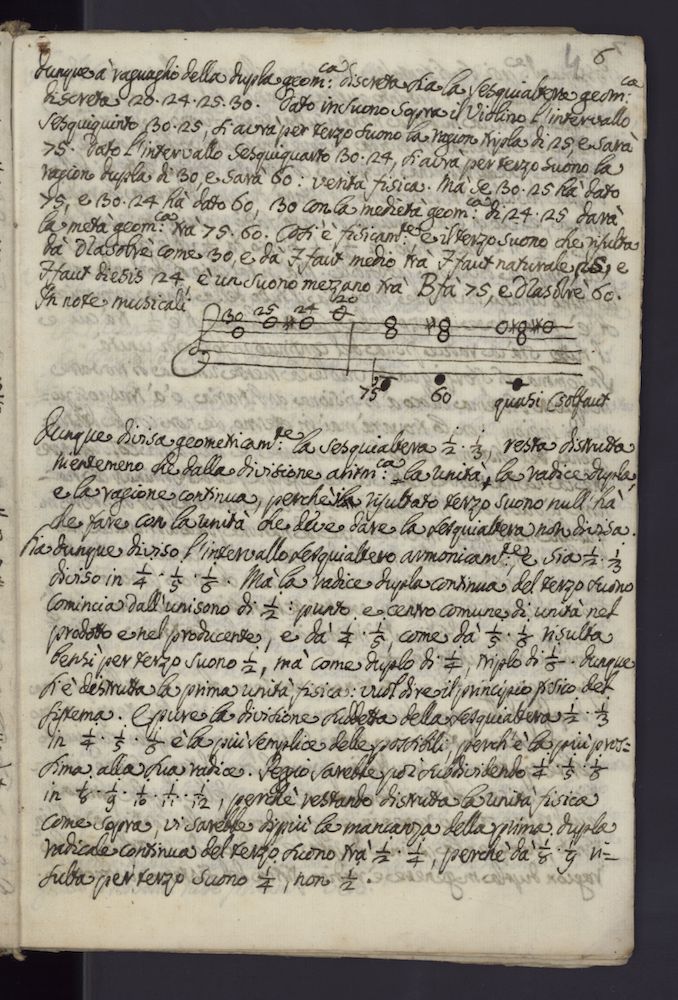 6
dunque à raguaglio della dupla geom:ca discreta sia la sesquialtera geom:ca
discreta 20·24·25·30. Dato in suono sopra il Violino l'intervallo
sesquiquinto 30·25, si avrà per terzo suono la ragion tripla di 25, e sarà
75. Dato l'intervallo sesquiquarto 30·24, si avrà per terzo suono la
ragion dupla di 30, e sarà 60: verità fisica. Ma se 30·25 hà dato
75, e 30·24 hà dato 60, 30 con la medietà geom:ca di 24·25 darà
la metà geom:ca trà 75·60. Così è fisicam:te, e il terzo suono che risulta
da Dlasolrè come 30, e da Ffaut medio trà Ffaut naturale 25, e
Ffaut diesis 24, è un suono mezzano trà Bfà 75, e Dlasolrè 60.
In note musicali
30 25 24 20
75 60 quasi Csolfaut
Dunque divisa geometricam:te la sesquialtera 1/2· 1/3, resta distrutta
nientemeno che dalla divisione aritm:ca la unità, la radice dupla,
e la ragione continua, perchè il risultato terzo suono null'hà
che fare con la unità che deve dare la sesquialtera non divisa.
Sia dunque diviso l'intervallo sesquialtero armonicam:te, e sia 1/2· 1/3
diviso in 1/4· 1/5· 1/6. Ma la radice dupla continua del terzo suono
comincia dall'unisono di 1/2: punto e centro comune di unità nel
prodotto e nel producente, e da 1/4· 1/5, come da 1/5· 1/6 risulta
bensì per terzo suono 1/2, mà come duplo di 1/4, triplo di 1/6. Dunque
si è distrutta la prima unità fisica: vuol dire il principio fisico del
sistema. Eppure la divisione suddetta della sesquialtera 1/2· 1/3
in 1/4· 1/5· 1/6 è la più semplice delle possibili, perch'è la più pros=
sima alla sua radice. Peggio sarebbe poi suddividendo 1/4· 1/5· 1/6
in 1/8· 1/9· 1/10· 1/11· 1/12, perchè restando distrutta la unità fisica
come sopra, vi sarebbe dipiù la mancanza della prima dupla
radicale continua del terzo suono trà 1/2· 1/4, perchè da 1/8· 1/9 ri=
sulta per terzo suono 1/4, non 1/2.